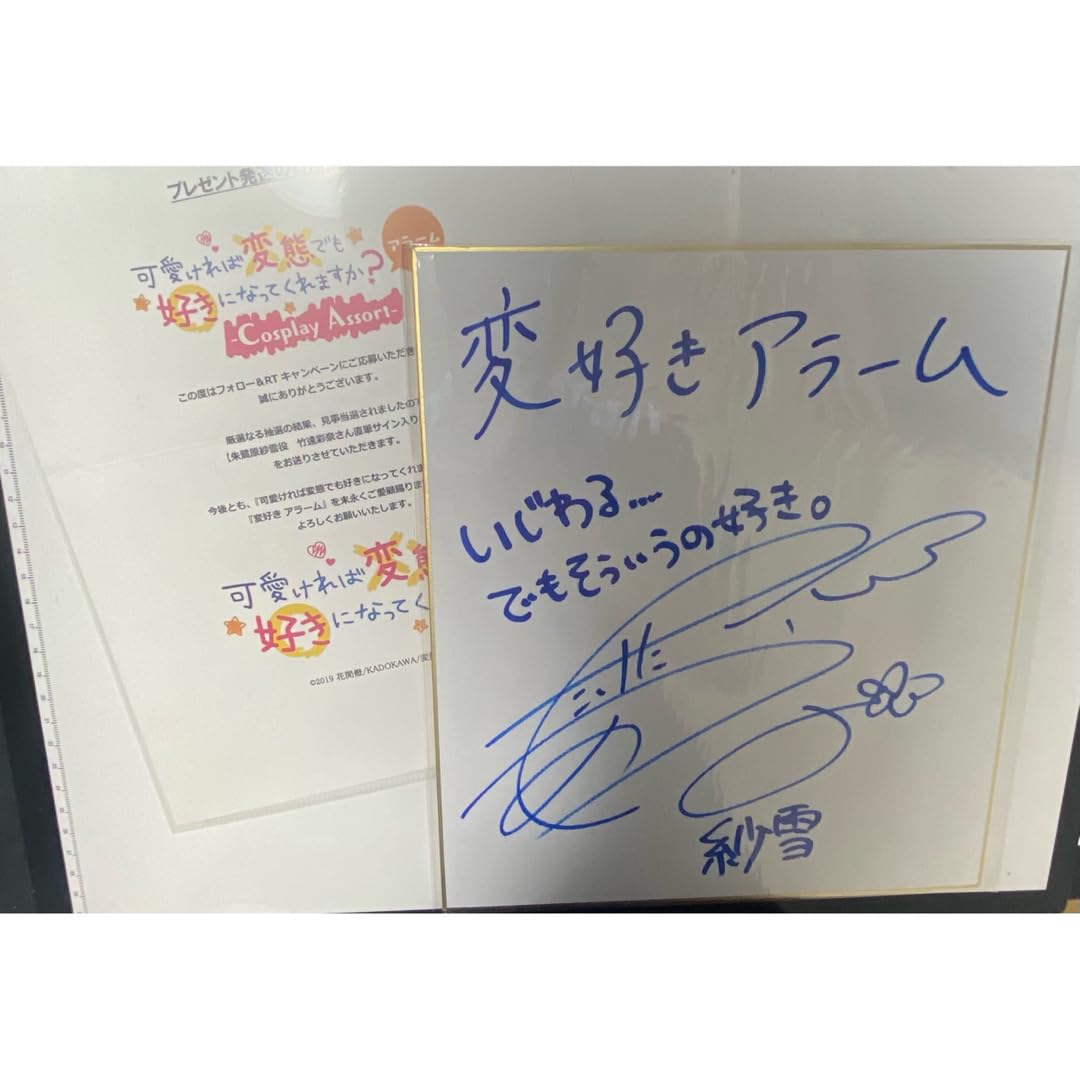 プレゼント発送の
可愛ければ変態でも
好きになってくれますか?
アラーム
-Cosplay Assort-
この度はフォロー&RTキャンペーンにご応募いただき
誠にありがとうございます。
厳選なる抽選の結果、見事当選されましたので
【朱鷺原紗雪役 竹達彩奈さん直筆サイン入り
をお送りさせていただきます。
今後とも、『可愛ければ変態でも好きになってくれま
『変好き アラーム』を末永くご愛顧賜りま
よろしくお願いいたします。
可愛ければ変
好きになってく
©2019 花間燈/KADOKAWA/変
変好きアラーム
いじわる....
でもそういうの好き。
紗雪